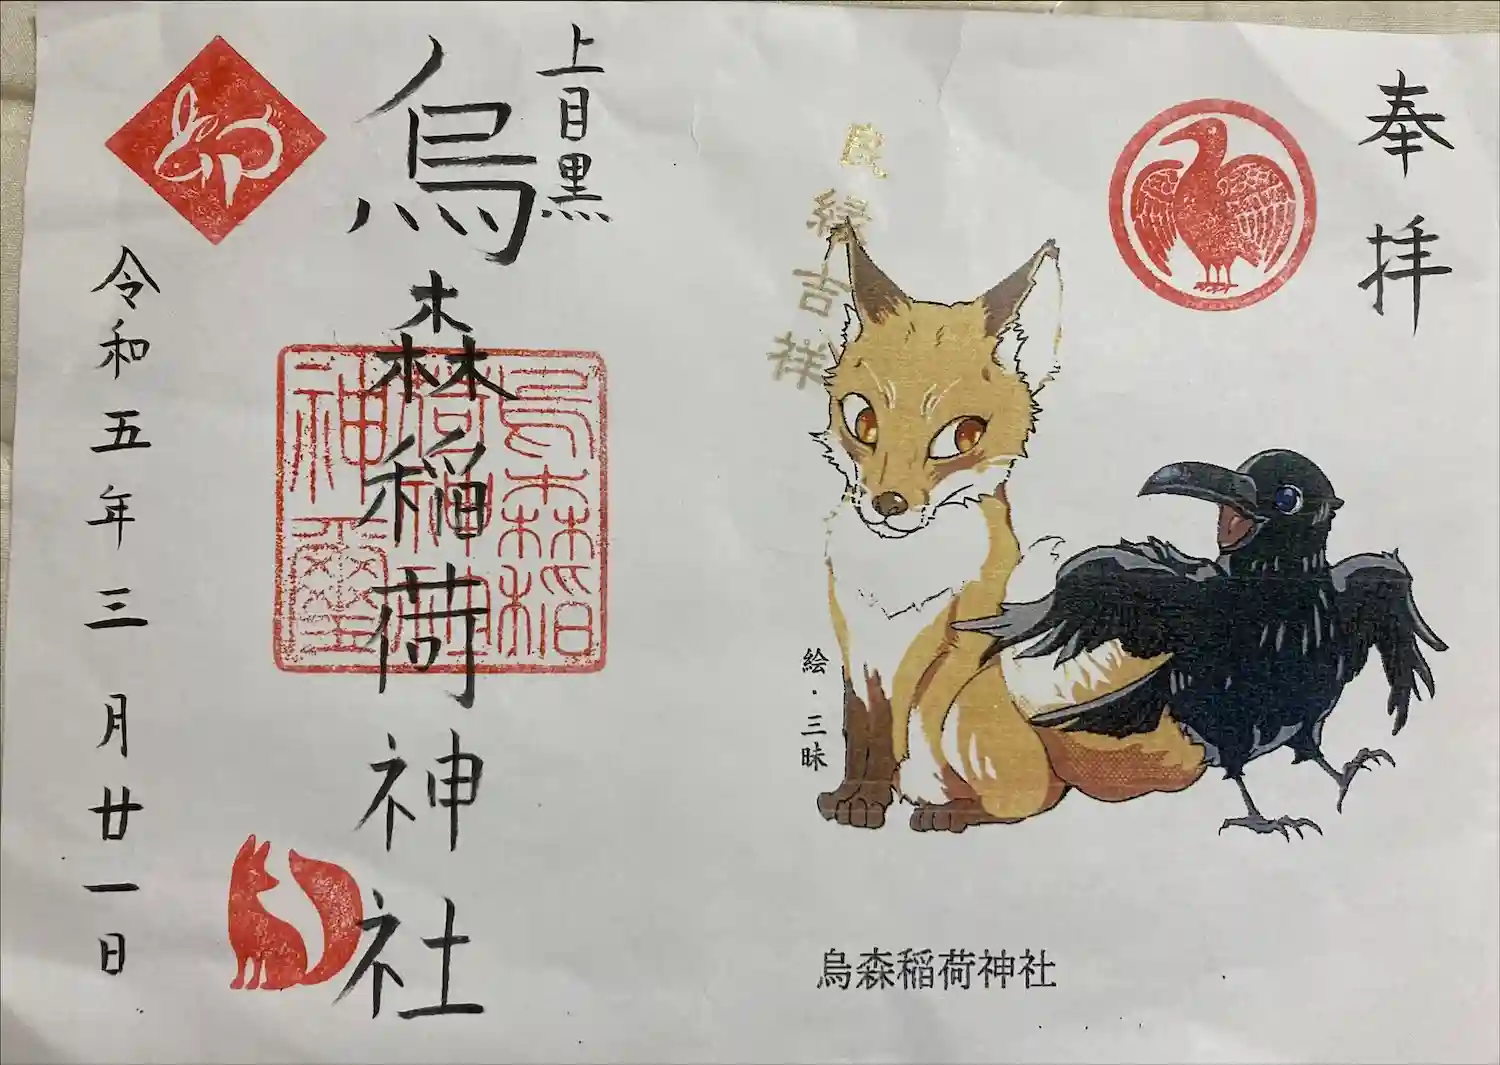 奉拝
良縁吉祥
絵・三昧
烏森稲荷神社
上目黒
烏森稲荷神社
烏森稲荷神社神璽
卯
令和五年三月廿一日